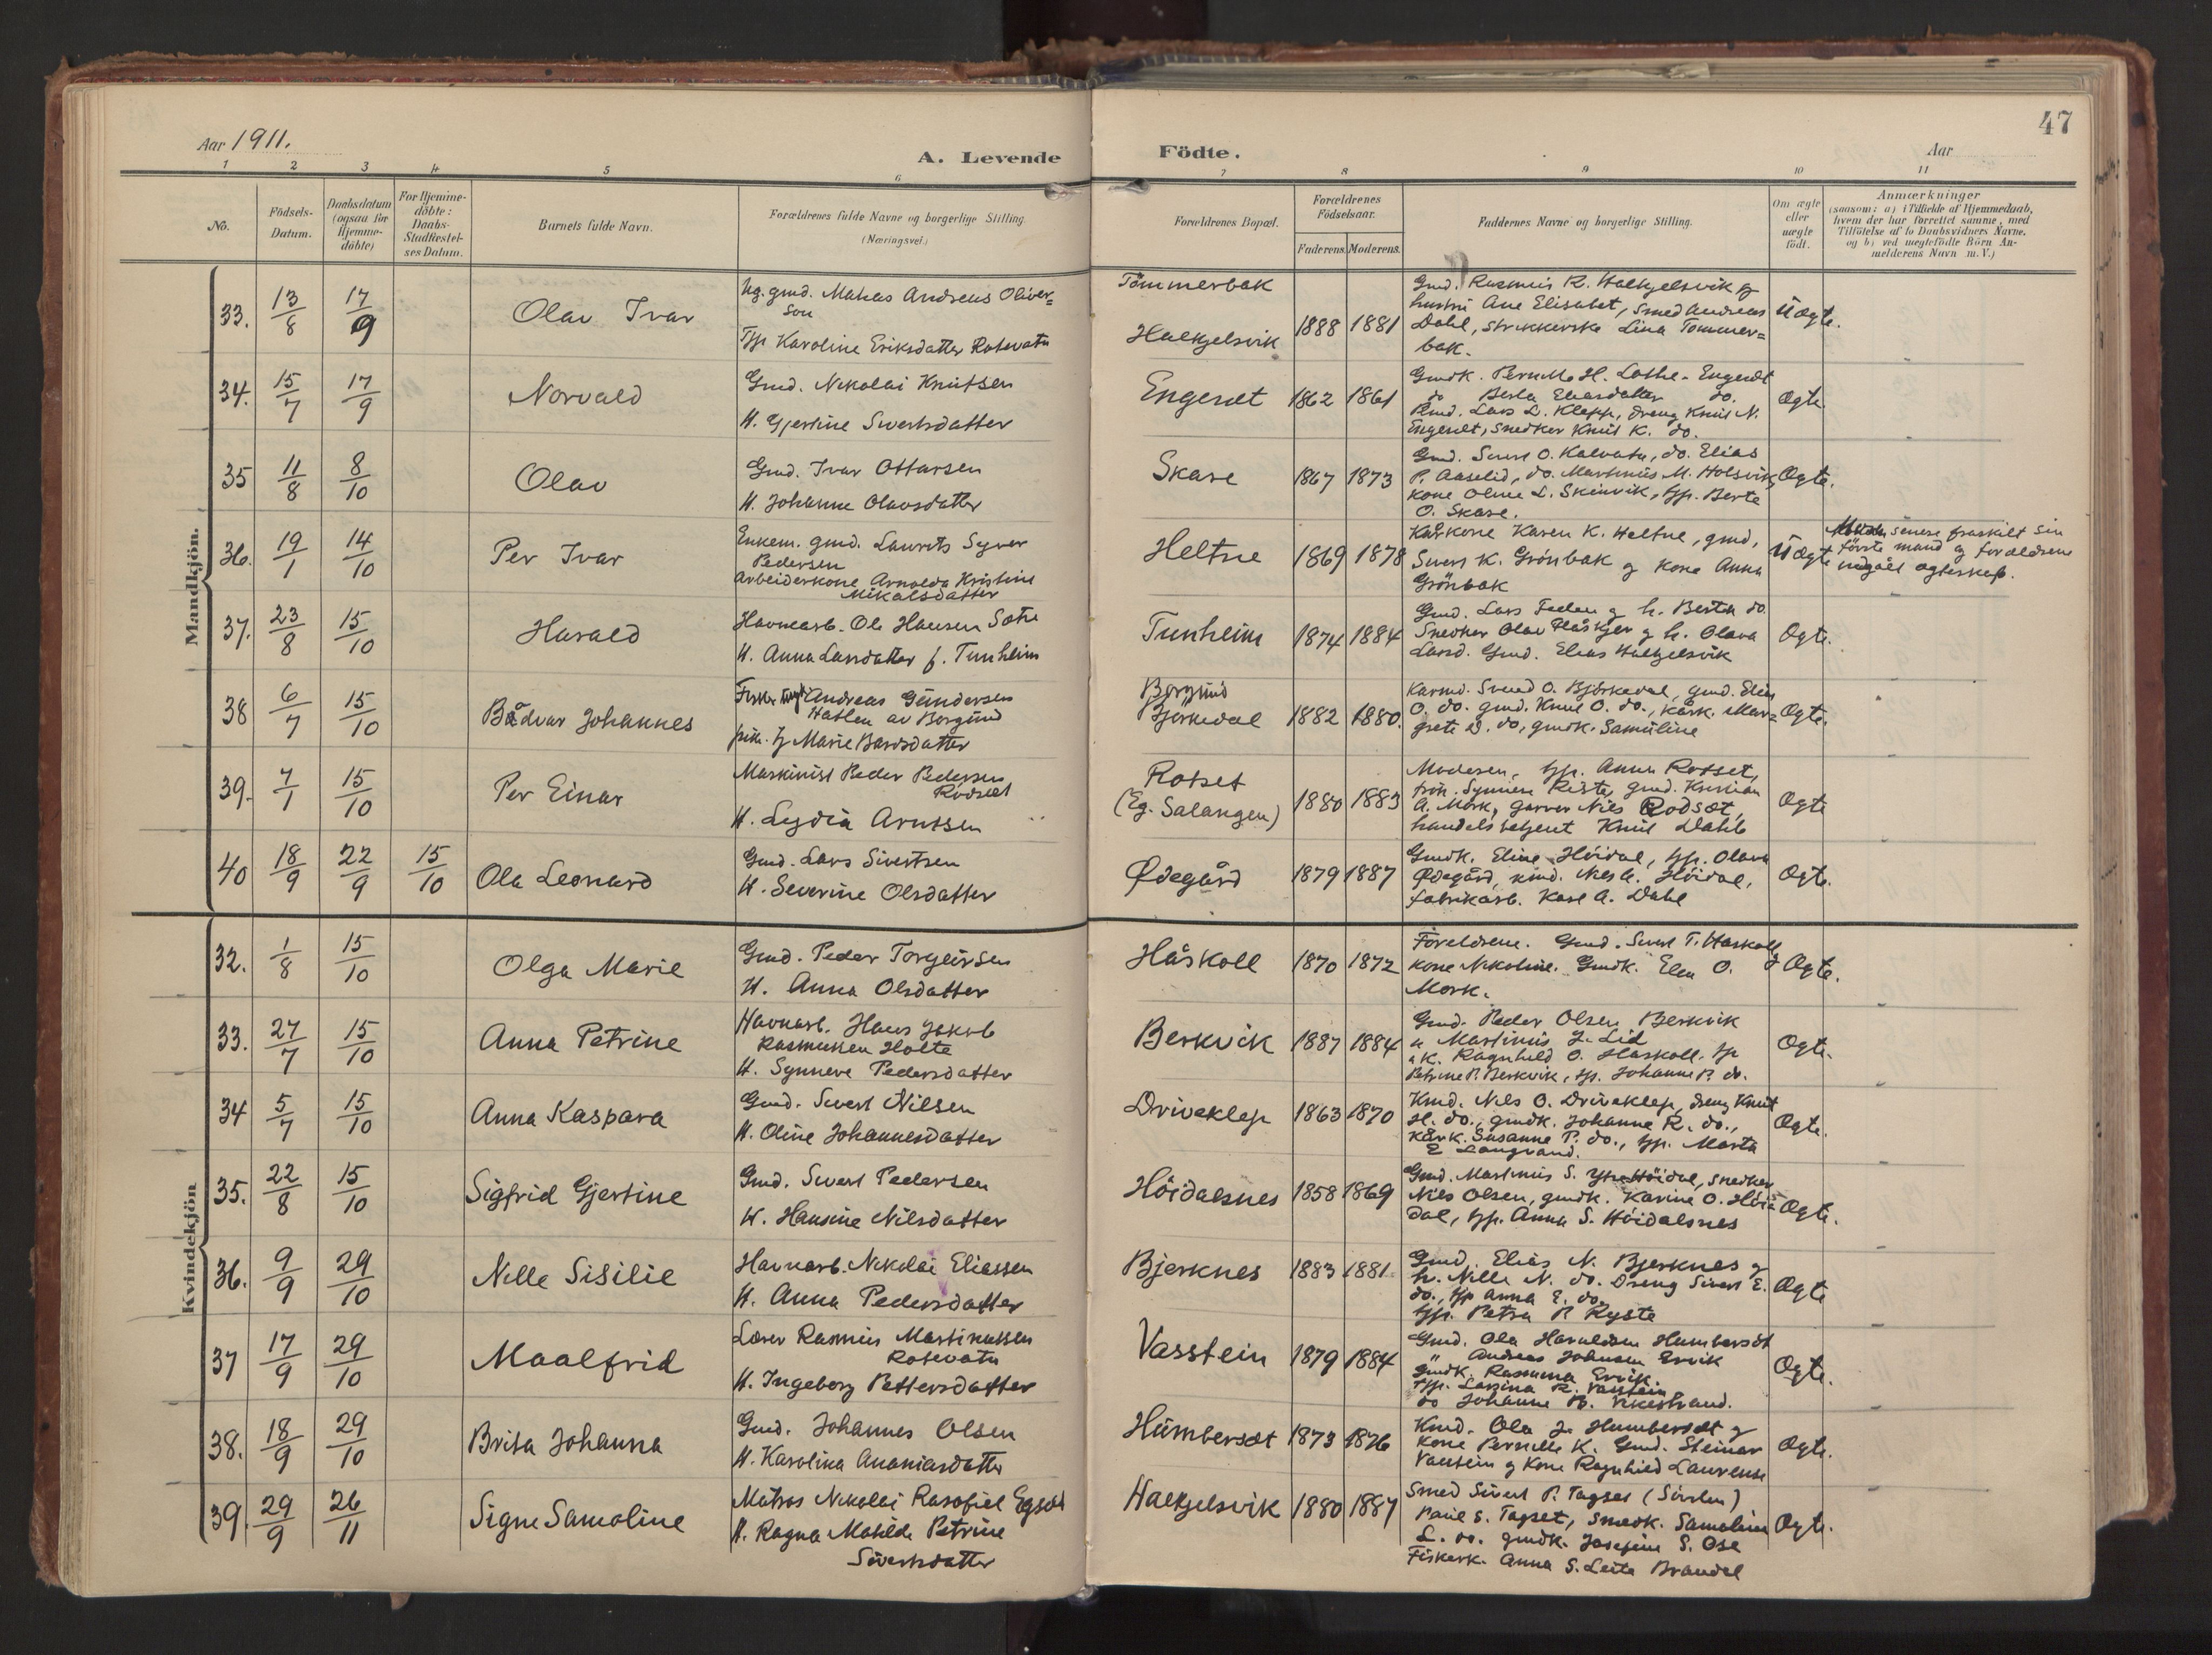 47
Aar 1911.
A. Levende Födte.
Aar
1 2 3 4 5 6 7 8 9 10 11
No.
Födsels-Datum.
Daabsdatum (ogsaa for Hjemmedöbte)
For Hjemmedöbte: Daabs-Stadfæstelses Datum.
Barnets fulde Navn.
Forældrenes fulde Navne og borgerlige Stilling. (Næringsvei.)
Forældrenes Bopæl.
Forældrenes Födselsaar.
Faderens. Moderens.
Faddernes Navne og borgerlige Stilling.
Om ægte eller uægte födt.
Anmærkninger
(saasom: a) i Tilfælde af Hjemmedaab,
hvem der har forrettet samme, med
Tilföielse af to Daabsvidners Navne,
og b) ved uægtefödte Börn An-
melderens Navn m. V.)
Mandkjön.
33. 13/8 17/9 Olav Ivar
Ug. gmd. Andreas Oliver=
son
Karoline Eriksdatter Rotevatn
Tömmerbak
Halkjelsvik 1888 1881
Gmd. Rasmus R. Halkjelsvik og
hustru Ane Elisabet, smed Andreas
Dahl, strikkerske Lina Tommer=
bak.
Uægte.
34. 15/7 17/9 Norvald
Gmd. Nikolai Knutsen
H. Gjertine Sivertsdatter
Engeset 1862 1861
Gmdk. Pernille H. Lothe-Engeset
do Berta Eliasdatter do.
Lars L. Klepp, dreng Knut N.
Engeset, snedker Knut K. do.
Ægte.
35 11/8 8/10 Olav
Gmd. Ivar Ottarsen
H. Johanne Olavsdatter
Skare 1867 1873
Gmd. Sivert O. Kalvatn, do. Elias
P. Aaselid, do. Martinus M. Holsvik,
kone Oline L. Skinvik, tjp. Berte
O. Skare.
Ægte.
36. 19/1 14/10 Per Ivar
Enkem. gmd. Laurits Syver
Pedersen
Arbeiderkone Arnolda Kristine
Mikalsdatter
Heltne 1869 1878
Kårkone Karen K. Heltne, gmd.
Sivert K. Grönbak og kone Anna
Grönbak
Uægte
senere fraskilt sin
förste mand og foreldrene
indgået ægteskap.
37. 23/8 15/10 Harald
Havnearb. Ole Hansen Sætre
H. Anna Larsdatter f. Tunheim
Tunheim 1874 1884
Gmd. Lars Feden og h. Berta do.
Snedker Olav Flåskjer og h. Olava
Larsd. Gmd. Elias Halkjelsvik
Ægte.
38 6/7 15/10 Bådvar Johannes
Fisker Andreas Gundersen
Hatlen av Borgund
Marie Bardsdatter
Borgund
Bjørkedal 1882 1880.
Karmd. Svend O. Bjørkedal, gmd. Elias
O. do. gmd. Knut O. do., kårk. Mar=
grete D. do, gmdk. Samuline
Ægte.
39. 7/1 15/10 Per Einar
Maskinist Peder Pedersen
Rødset
H. Lydia Arntsen
Rotset
(Eg. Salangen) 1880 1883
Moderen, tjp. Anna Rotset,
frøk. Synnøve Riste, gmd. Kristian
A. Mork, garver Nils Rodsæt,
handelsbetjent Knut Dahle
Ægte
40 18/9 22/9 15/10 Ola Leonard
Gmd. Lars Sivertsen
H. Severine Olsdatter
Ødegård 1879 1887
Gmdk. Eline Höidal, tjp. Olava
Ødegård, Nils A. Höidal,
fabrikarb. Karl A. Dahl
Ægte.
Kvindekjön
32. 1/8 15/10 Olga Marie
Gmd. Peder Torgeirsen
H. Anna Olsdatter
Håskoll 1870 1872
Foreldrene. Gmd. Sivert T. Haskoll og
kone Nikoline. Gmdk. Elen O.
Mork.
Ægte.
33. 27/7 15/10 Anna Petrine
Havnarb. Hans Jakob
Rasmussen Holte
H. Synneve Pedersdatter
Berkvik 1887 1884
Gmd. Peder Olsen Berkvik
" Martinus J. Lid
" K. Ragnhild O. Haskoll. tjp
Petrine P. Berkvik, tjp. Johanne P. do.
Ægte.
34 5/7 15/10 Anna Kaspara
Gmd. Sivert Nilsen
H. Oline Johannesdatter
Driveklep 1863 1870
Kmd. Nils O. Driveklep, dreng Knut
H. do., gmdk. Johanne R. do.,
kårk. Susanne P. do., tjp. Marta
E Langvand.
Ægte.
35. 22/8 15/10 Sigfrid Gjertine
Gmd. Sivert Pedersen
H. Hansine Nilsdatter
Höidalsnes 1858 1869
Gmd. Martinus S. Ytre Höidal, snedker
Nils Olsen, gmdk. Karine O. Höi=
dal, tjp. Anna S. Höidalsnes
Ægte.
36. 9/9 29/10 Nille Sisilie
Havnarb. Nikolai Eliassen
H. Anna Pedersdatter
Bjerknes 1883 1881
Gmd. Elias N. Bjerknes og
h. Nille N. do. Dreng Sivert E.
do., tjp Anna E. do.
tjp. Petra P. Ryste
Ægte
37 17/9 29/10 Maalfrid
Lærer Rasmus Martinussen
Rotevatn
H. Ingeborg Pettersdatter
Vasstein 1879 1884
Gmd. Ola Haraldsen Humbersæt
" Andreas Johnsen Ervik
Gmdk. Rasmina Ervik
Tjp. Larsina R. Vasstein
do Johanne B. Vikestrand.
Ægte.
38. 18/9 29/10 Brita Johanna
Gmd. Johannes Olsen
H. Karolina Ananiasdatter
Humbersæt 1873 1876
Kmd. Ola J. Humbersæt og
kone Pernille K. Gmd. Steinar
Vasstein og kone Ragnhild Laurense
Ægte.
39. 29/9 26/11 Signe Samoline
Matros Nikolai Rasofiel Egset
H. Ragna Matilde Petrine
Sivertsdatter
Halkjelsvik 1880 1887
Smed Sivert P. Tagset
Paul S. Tagset, smedk. Samoline
L. do. gmdk. Josefine S. Ose
Fiskerk. Anna S. Leite Brandal
Ægte.